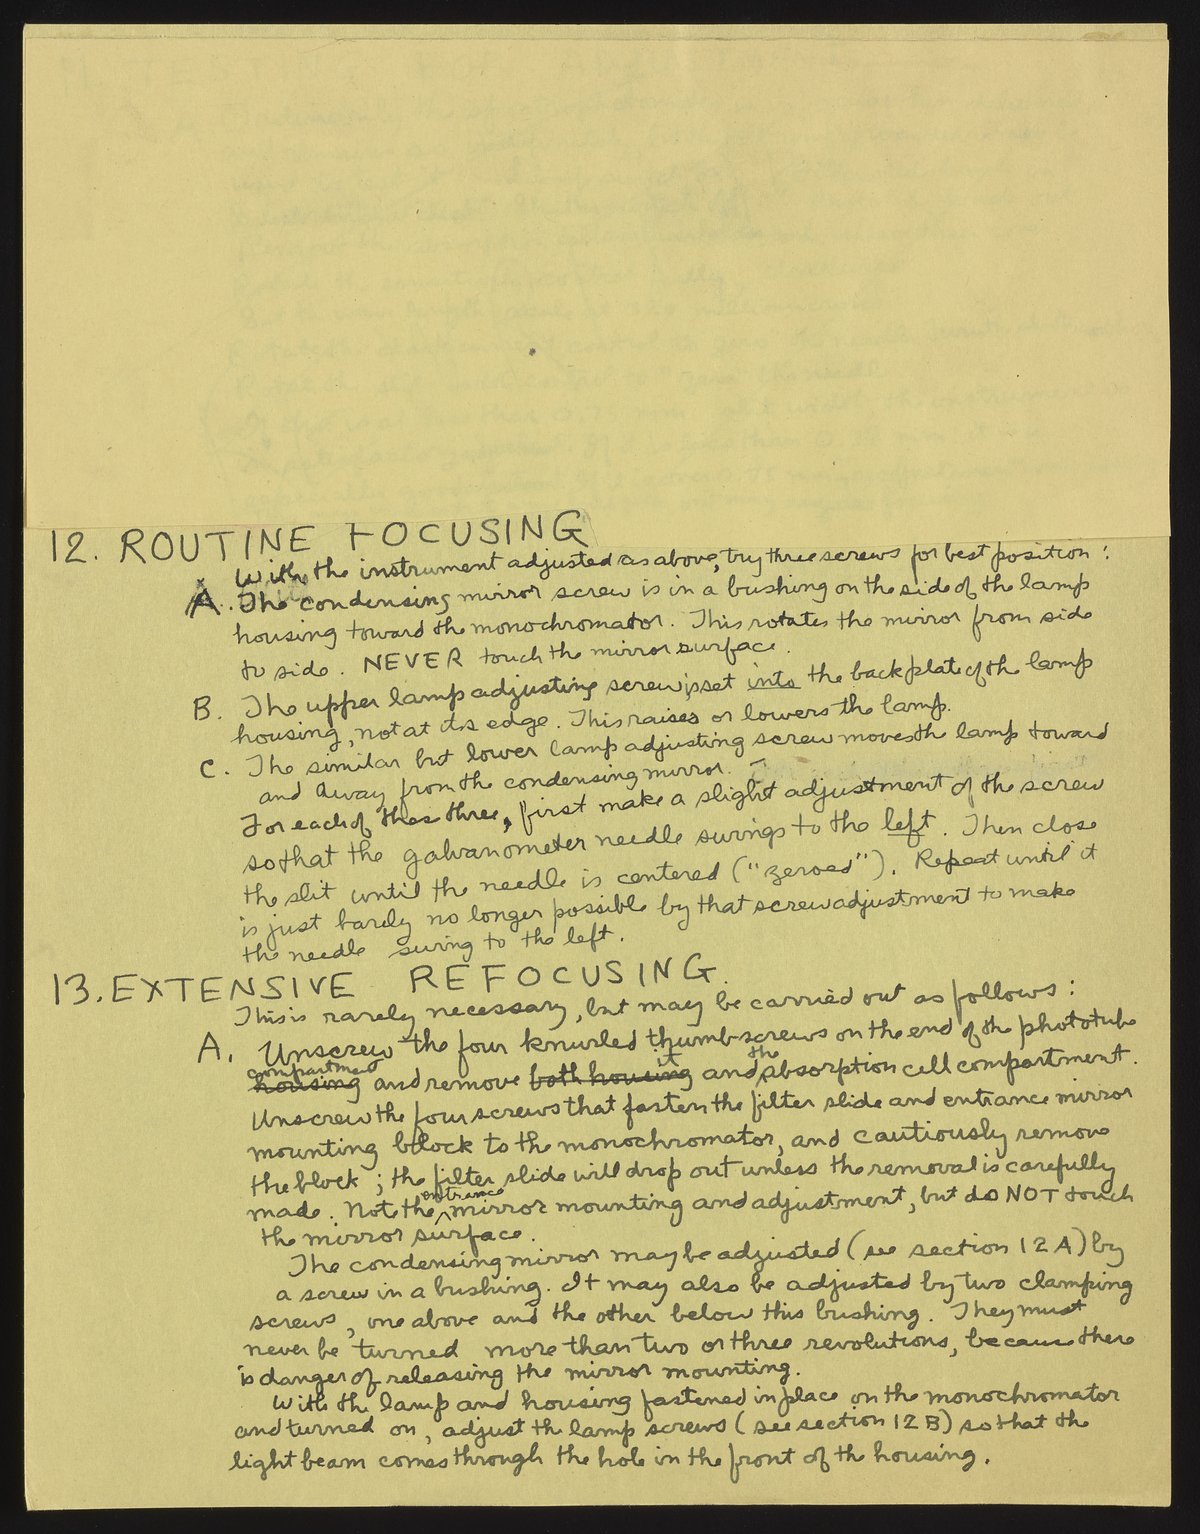 12. ROUTINE FOCUSING
With the instrument adjusted as above, try three screws for best position:
A. The condensing mirror screw is in a bushing on the side of the lamp
housing toward the monochromator. This rotates the mirror from side
to side. NEVER touch the mirror surface.
B. The upper lamp adjusting screw is set into the back plate of the lamp
housing, not at its edge. This raises or lowers the lamp.
C. The similar but lower lamp adjusting screw moves the lamp toward
and away from the condensing mirror.
For each of these three, first make a slight adjustment of the screw
so that the galvanometer needle swings to the left. Then close
the slit until the needle is centered ("zeroed"). Repeat until it
is just barely no longer possible by that screw adjustment to make
the needle swing to the left.
13. EXTENSIVE REFOCUSING.
This is rarely necessary, but may be carried out as follows:
A. Unscrew the four knurled thumb-screws on the end of the phototube
compartment housing and remove both housing it and the absorption cell compartment.
Unscrew the four screws that fasten the filter slide and entrance mirror
mounting block to the monochromator, and cautiously remove
the block; the filter slide will drop out unless the removal is carefully
made. Note the entrance mirror mounting and adjustment, but do NOT touch
the mirror surface.
The condensing mirror may be adjusted (see section 12 A) by
a screw in a bushing. It may also be adjusted by two clamping
screws, one above and the other below this bushing. They must
never be turned more than two or three revolutions, because there
is danger of releasing the mirror mounting.
With the lamp and housing fastened in place on the monochromator
and turned on, adjust the lamp screws (see section 12 B) so that the
light beam comes through the hole in the front of the housing.